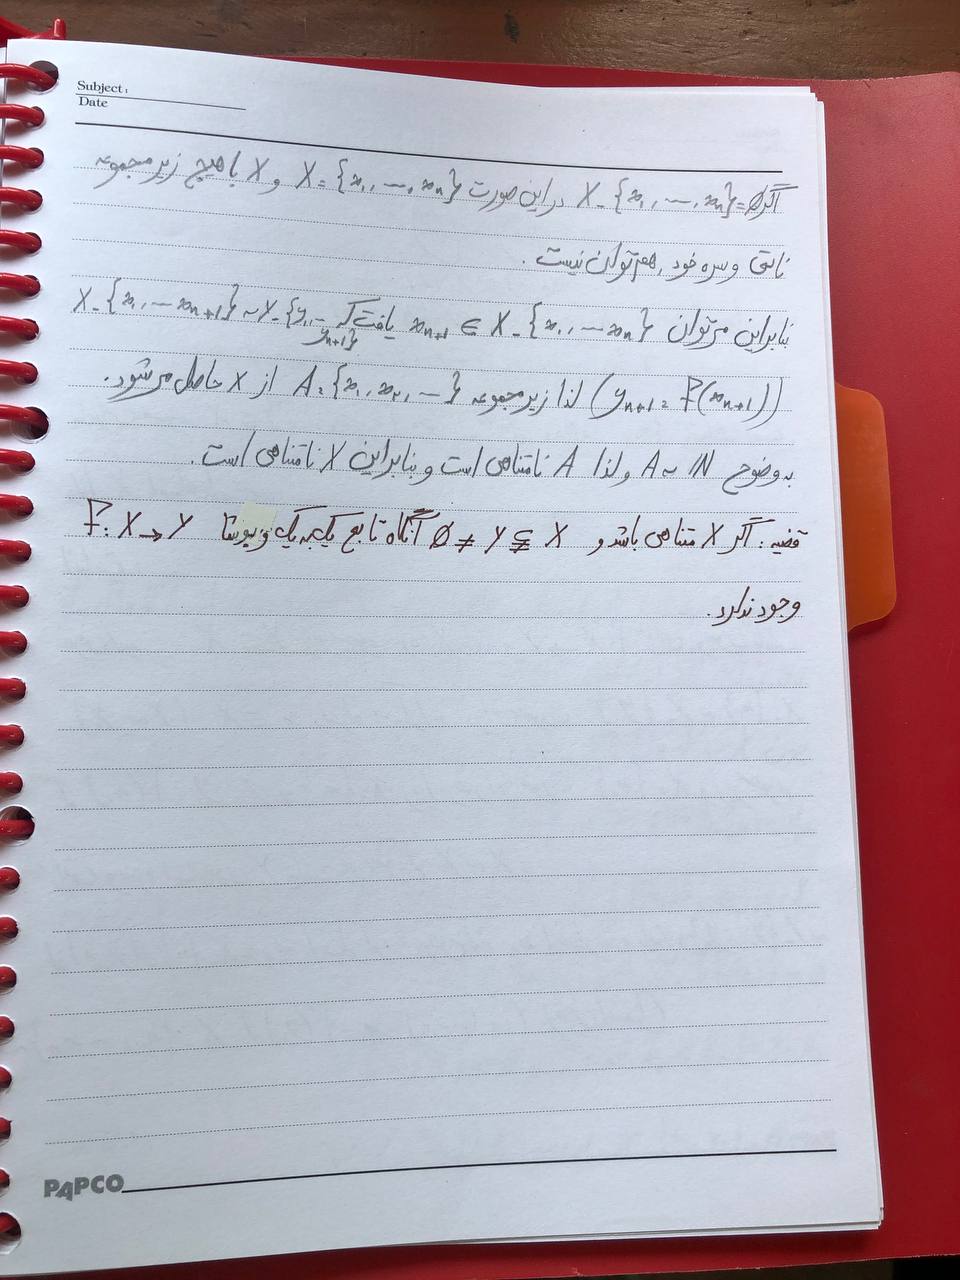 Subject:
Date
اگر X - {x₁, ..., xₙ} = ∅ در این صورت X = {x₁, ..., xₙ} و X با هیچ زیرمجموعه
ناتهی و سره خود، هم‌توان نیست.
بنابراین می‌توان xₙ₊₁ ∈ X - {x₁, ... xₙ} یافت که X - {x₁, ... xₙ₊₁} ~ Y - {y₁, ... yₙ₊₁}
(yₙ₊₁ = f(xₙ₊₁)) لذا زیرمجموعه A = {x₁, x₂, ...} از X حاصل می‌شود.
به وضوح A ~ ℕ و لذا A نامتناهی است و بنابراین X نامتناهی است.
قضیه: اگر X متناهی باشد و ∅ ≠ Y ⊊ X آنگاه تابع یک به یک و پوشا f: X → Y
وجود ندارد.
PAPCO